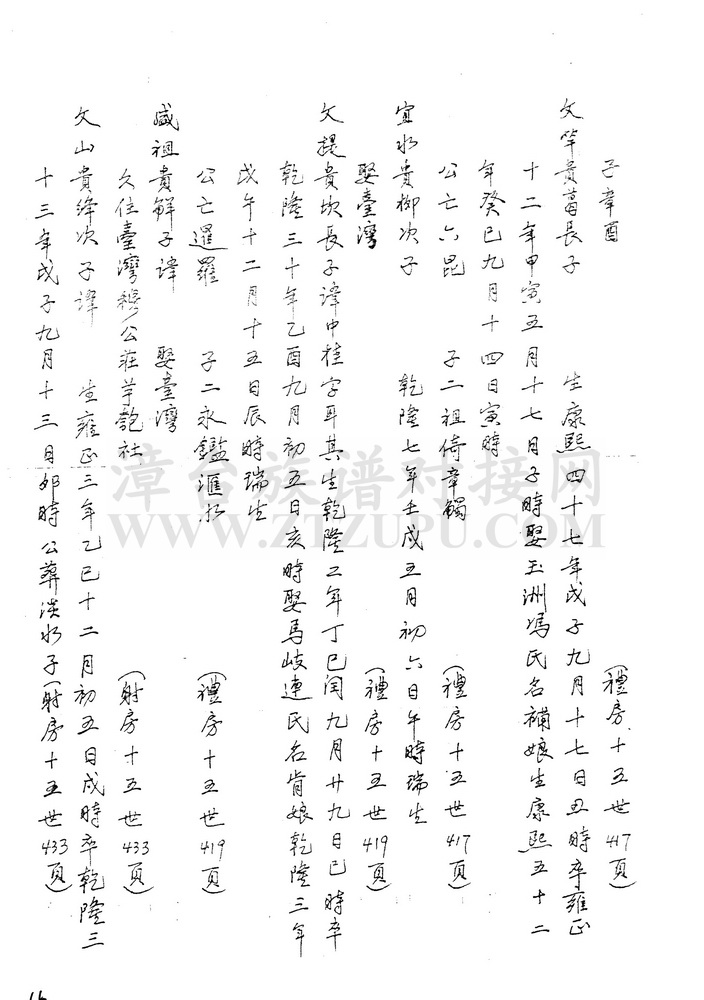 子韋酉 (禮房十五世417頁)
文竿貴菖長子 生康熙四十七年戊子九月十七日丑時卒雍正
十二年甲寅五月十七日子時娶玉洲馮氏名補娘生康熙五十二
年癸巳九月十四日寅時
公亡六昆 子二祖倚章觸 (禮房十五世417頁)
宜水貴柳次子 乾隆七年壬戌五月初六日午時瑞生
娶臺灣 (禮房十五世419頁)
文提貴坎長子諱中桂字耳其生乾隆二年丁巳閏九月廿九日巳時卒
乾隆三十年乙酉九月初五日亥時娶馬岐連氏名肯娘乾隆三年
戊午十二月十五日辰時瑞生
公亡暹羅 子二永鑑滙水 (禮房十五世419頁)
咸祖貴解子諱 娶臺灣
久住臺灣穆公莊芋匏社 (射房十五世433頁)
文山貴絳次子諱 生雍正三年乙巳十二月初五日戌時卒乾隆三
十三年戊子九月十三日卯時公葬淡水子(射房十五世433頁)
16
漳台族谱对接网
WWW.ZTZUPU.COM